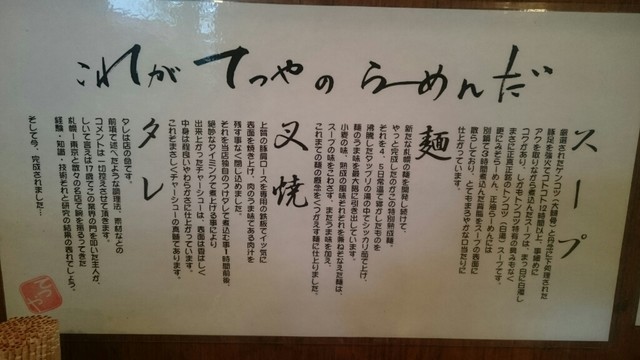 これがてつやのらーめんだ
スープ
厳選されたゲンコツ(大腿骨)と丹念に下処理された
豚足を強火でコトコト12時間以上、寧寧めに
アクを取りながら煮込んだスープは、まっ白に白濁し
コクがあり、しかもトンコツ特有の臭みもなく
まさに正真正銘のトンコツ(白湯)スープです。
更にみそらーめん、正油らーめんには
別鍋で24時間煮込んだ背脂をスープの表面に
散らしており、とてもまろやかな口当たりに
仕上がっています。
麺
新たな札幌の麺を開発し続けて、
やっと完成したのがこの特別熟成麺。
それを4、5日常温で寝かしたものを
沸騰したタップリの湯の中でシッカリ茹で上げ、
麺のうま味を最大限に引き出しています。
小麦の味、熟成の風味それぞれを兼ねそなえた麺は、
スープの味をこわさず、またうま味を加え、
これまでの麺の概念をくつがえす麺に仕上りました。
叉焼
上質の豚肩ロースを専用の鉄板でイッ気に
表面を焼き上げ、肉のうま味である肉汁を
残す事なく閉じ込めました。
それを当店独自のカワダレで煮込む事1時間前後、
絶妙なタイミングで煮上げる事により
出来上がったチャーシューは、表面は香ばしく
中身は程良いやわらかさに仕上がっています。
これぞまさしくチャーシューの真髄であります。
タレ
タレは当店の命です。
前項で述べたような調理法、素材などの
コメントは一切控えさせて頂きます。
しいて言えば17歳でこの業界の門を叩いた主人が、
札幌ー東京と数々の名店で腕を振るってきた
経験・知識・技術それと研究の結晶の表れでしょう。
そして今、完成されました…
てつや